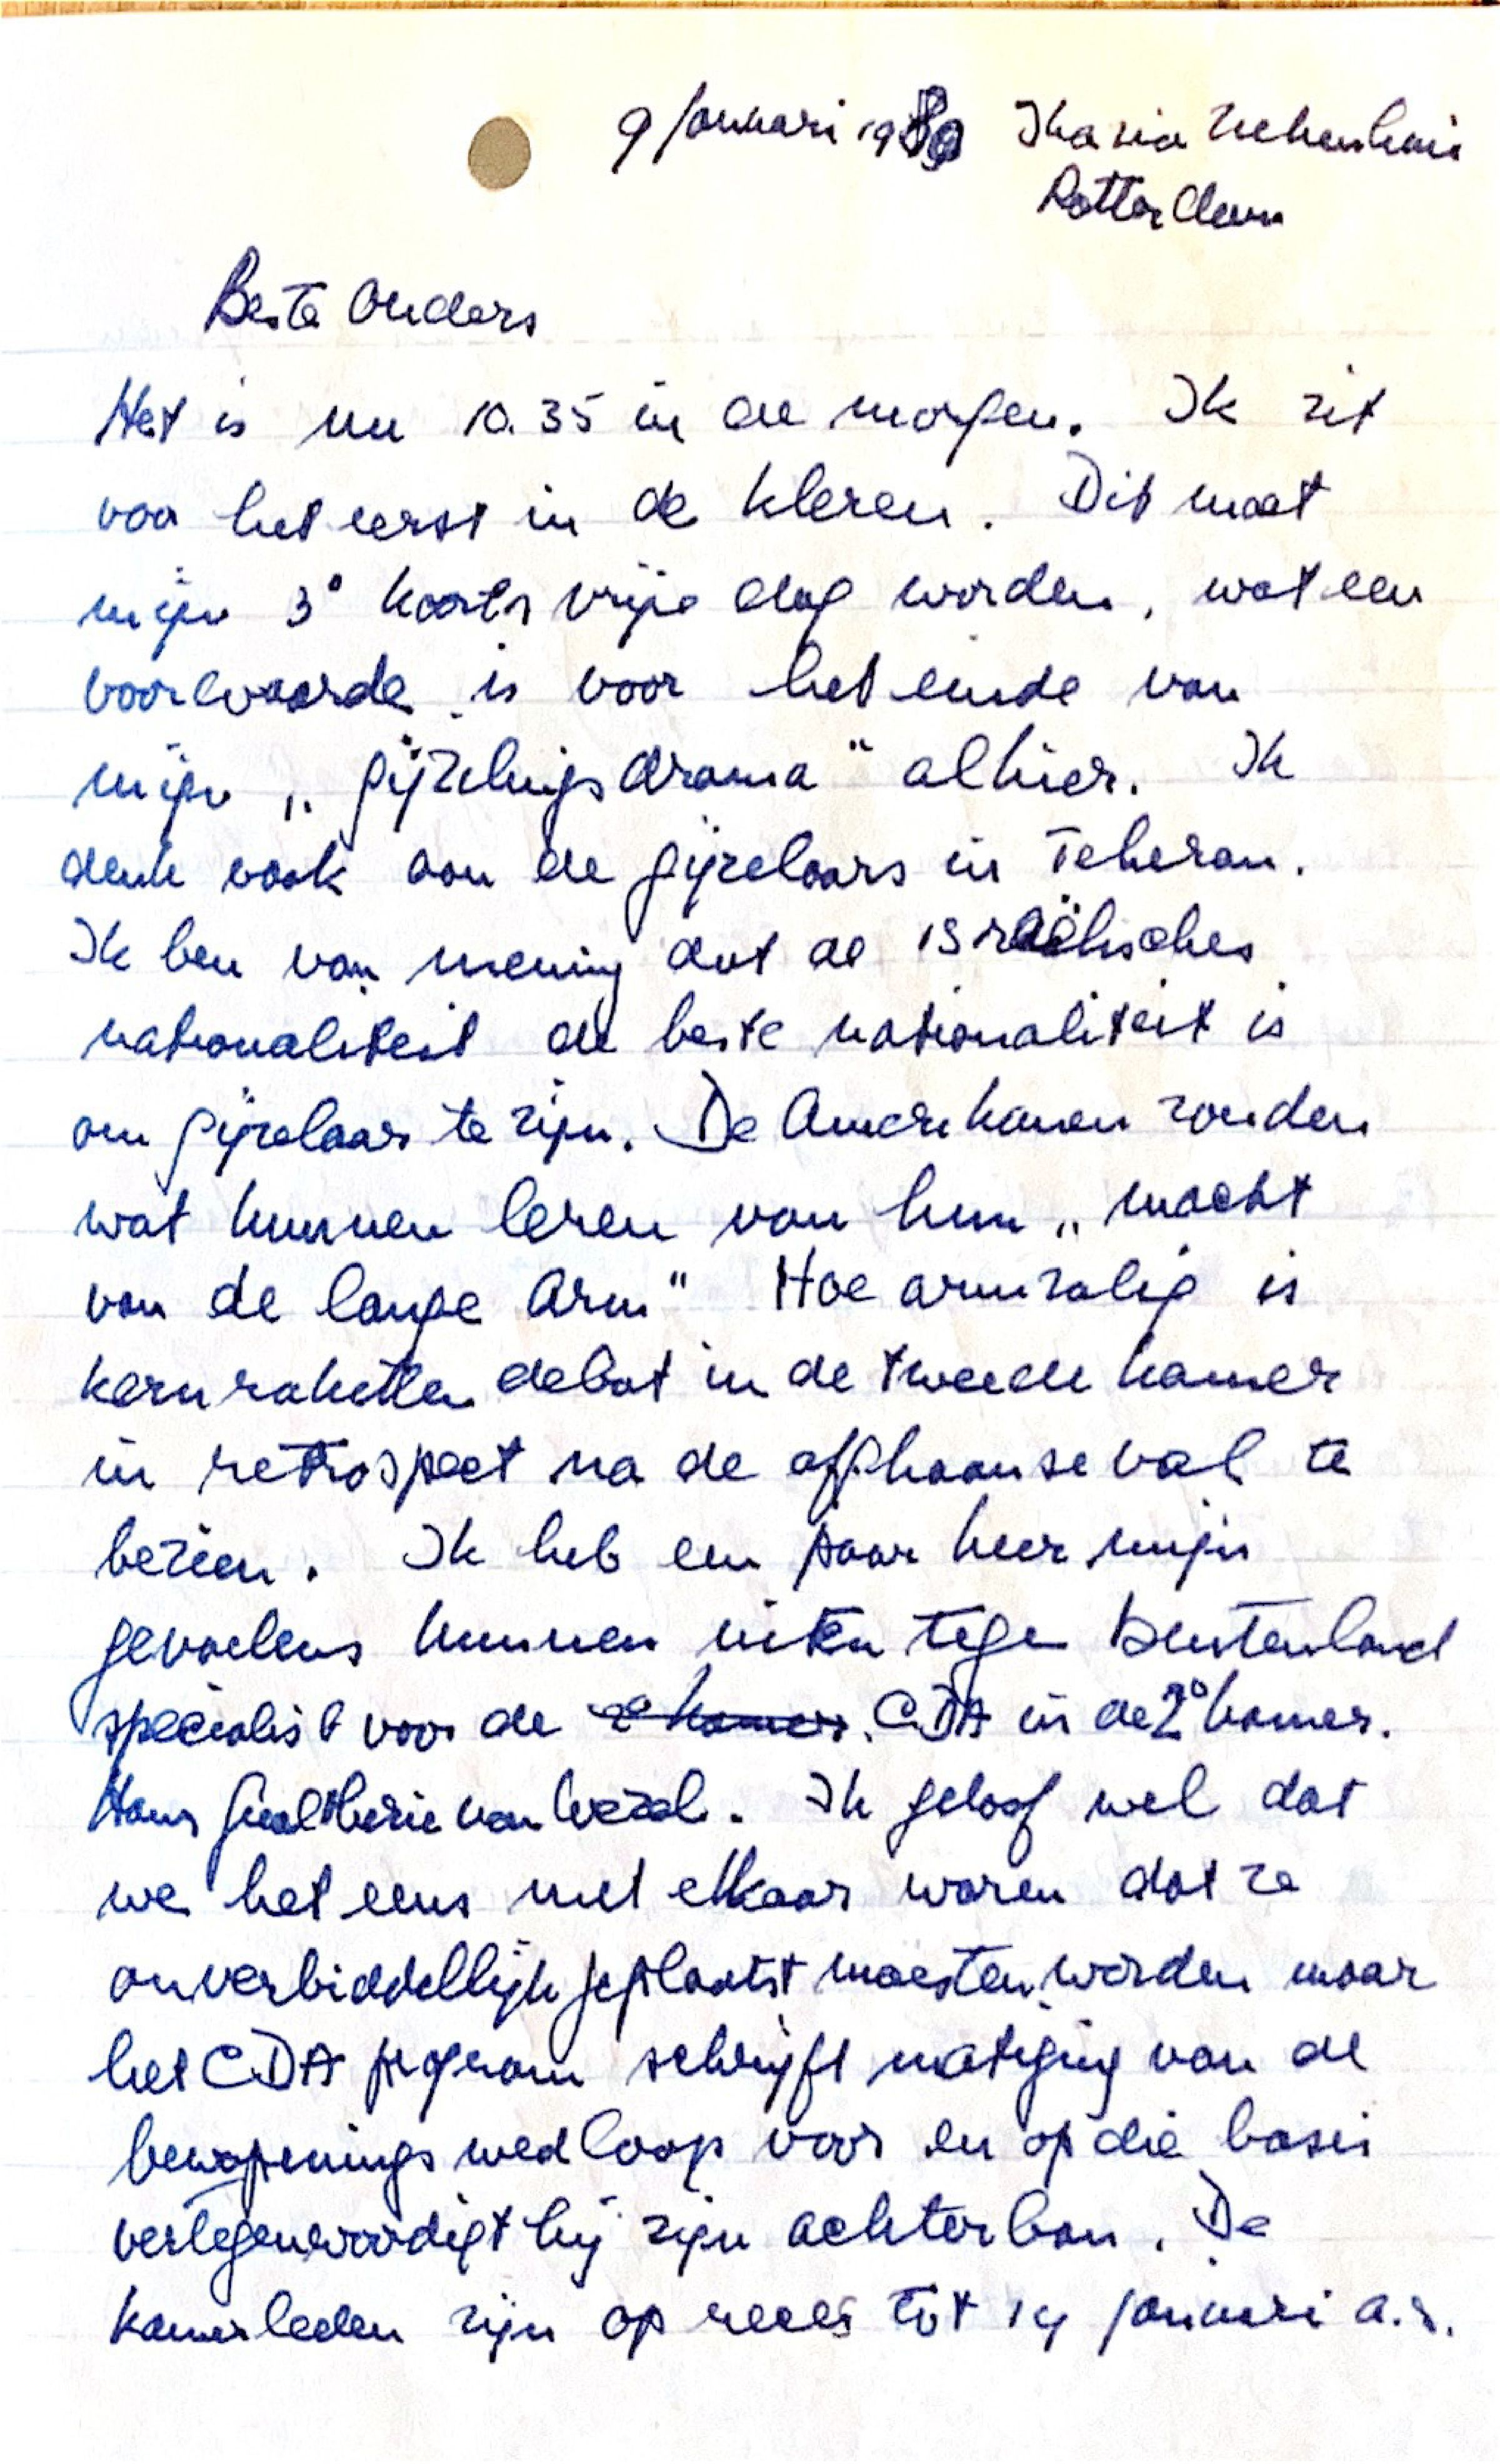 9 januari 1980 Ikazia Ziekenhuis
Rotterdam
Beste Ouders
Het is nu 10.35 in de morgen. Ik zit
voor het eerst in de kleren. Dit moet
mijn 3e koorts vrije dag worden, wat een
voorwaarde is voor het einde van
mijn „gijzelings drama" alhier. Ik
denk vaak aan de gijzelaars in Teheran.
Ik ben van mening dat de israëlisches
nationaliteit de beste nationaliteit is
om gijzelaar te zijn. De Amerikanen zouden
wat kunnen leren van hun „macht
van de lange Arm" Hoe armzalig is
kernraketten debat in de tweede kamer
in retrospect na de afghaanse val te
bezien. Ik heb een paar keer mijn
gevoelens kunnen uiten tegen buitenland
specialist voor de 2e kamer. CDA in de 2e kamer.
Hans Gualtherie van Weezel. Ik geloof wel dat
we het eens met elkaar waren dat ze
onverbiddellijk geplaatst moesten worden maar
het CDA program schrijft matiging van de
bewapenings wedloop voor en op die basis
vertegenwoordigt hij zijn achterban. De
kamerleden zijn op reces tot 14 januari a.s.